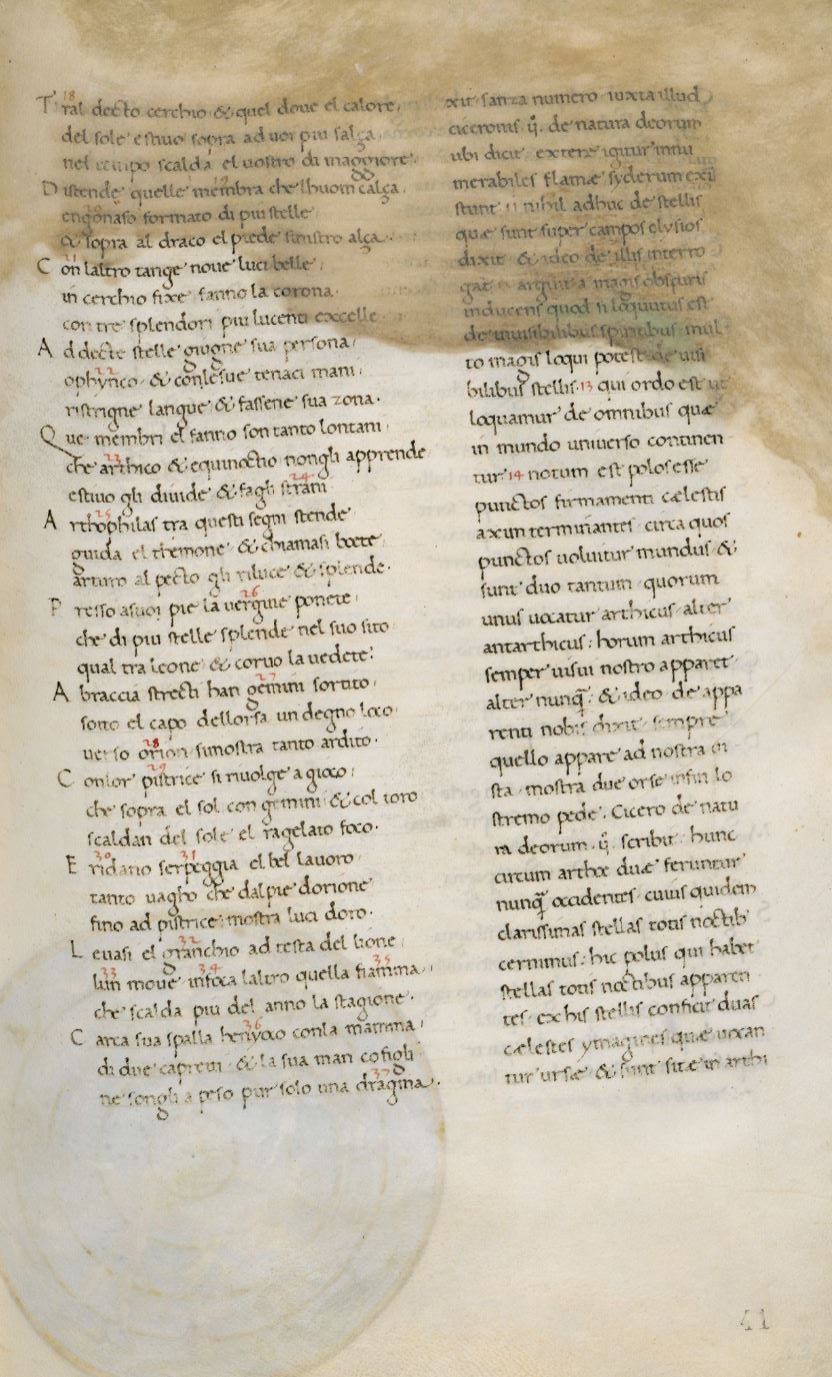 18
Tral decto cerchio & quel doue el calore
del sole estiuo sopra ad uoi piu salça
nel tempo scalda el uostro di maggiore
Distende quelle membra che lhuom calça
engonaso formato di piu stelle
& sopra al draco el piede sinistro alça
Con laltro tange noue luci belle
in cerchio fixe fanno la corona
con tre splendori piu lucenti excelle
Ad decte stelle giugne sua persona
22
ophynco & conlesue tenaci mani
ristrigne langue & fassene sua zona
Que membri el fanno son tanto lontani
23
che arthico & equinoctio nongli apprende
24
estiuo gli diuide & fagli strani
25
Arthophilas tra questi segni stende
guida el themone & chiamasi boete
arturo al pecto gli riluce & splende
26
Presso asuoi pie la uergine ponete
che di piu stelle splende nel suo sito
qual tra leone & coruo la uedete
27
Abraccia strecti han gemini sortito
sotto el capo dellorsa un degno loco
28
uerso orion simostra tanto ardito
29
Conlor pistrice si riuolge a gioco
che sopra el sol con gemini & col toro
scaldan del sole el ragelato foco
30 31
Eridano serpeggia el bel lauoro
tanto uagho che dal pie dorione
fino ad pistrice mostra luci doro
32
Leuasi el granchio ad testa del lione
33 34 35
lun moue infoca laltro quella fiamma
che scalda piu del anno la stagione
36
Carca sua spalla henyoco conla mamma
di due capretti & la sua man cofigli
37
ne songli a peso pur solo una dragma
xit sanza numero iuxta illud
ciceronis ij. de natura deorum
ubi dicit extere igitur innu
merabiles flamæ syderum exi
stunt nihil adhuc de stellis
quæ sunt super campos elysios
dixit & ideo de illis interro
gat & arguit a magis obscuris
inducens quod si loquutus est
de inuisibilibus spiritibus mul
to magis loqui potest de uisi
bilibus stellis. 13 qui ordo est ut
loquamur de omnibus quæ
in mundo uniuerso continen
tur 14 notum est polos esse
punctos firmamenti cælestis
axun terminantes circa quos
punctos uoluitur mundus &
sunt duo tantum quorum
unus uocatur arthicus alter
antarthicus: horum arthicus
semper uisui nostro apparet
alter nunq̃: & ideo de appa
renti nobis dixit sempre
quello appare ad nostra ui
sta mostra due orse infin lo
stremo pede. Cicero de natu
ra deorum ij. scribit hunc
circum arthæ duæ feruntur
nunq̃ occidentes cuius quidem
clarissimas stellas totis noctib
cernimus: hic polus qui habet
stellas totis noctibus apparen
tes ex his stellis conficit duas
cælestes ymagines quæ uocan
tur ursæ & sunt sitæ in arthi
41